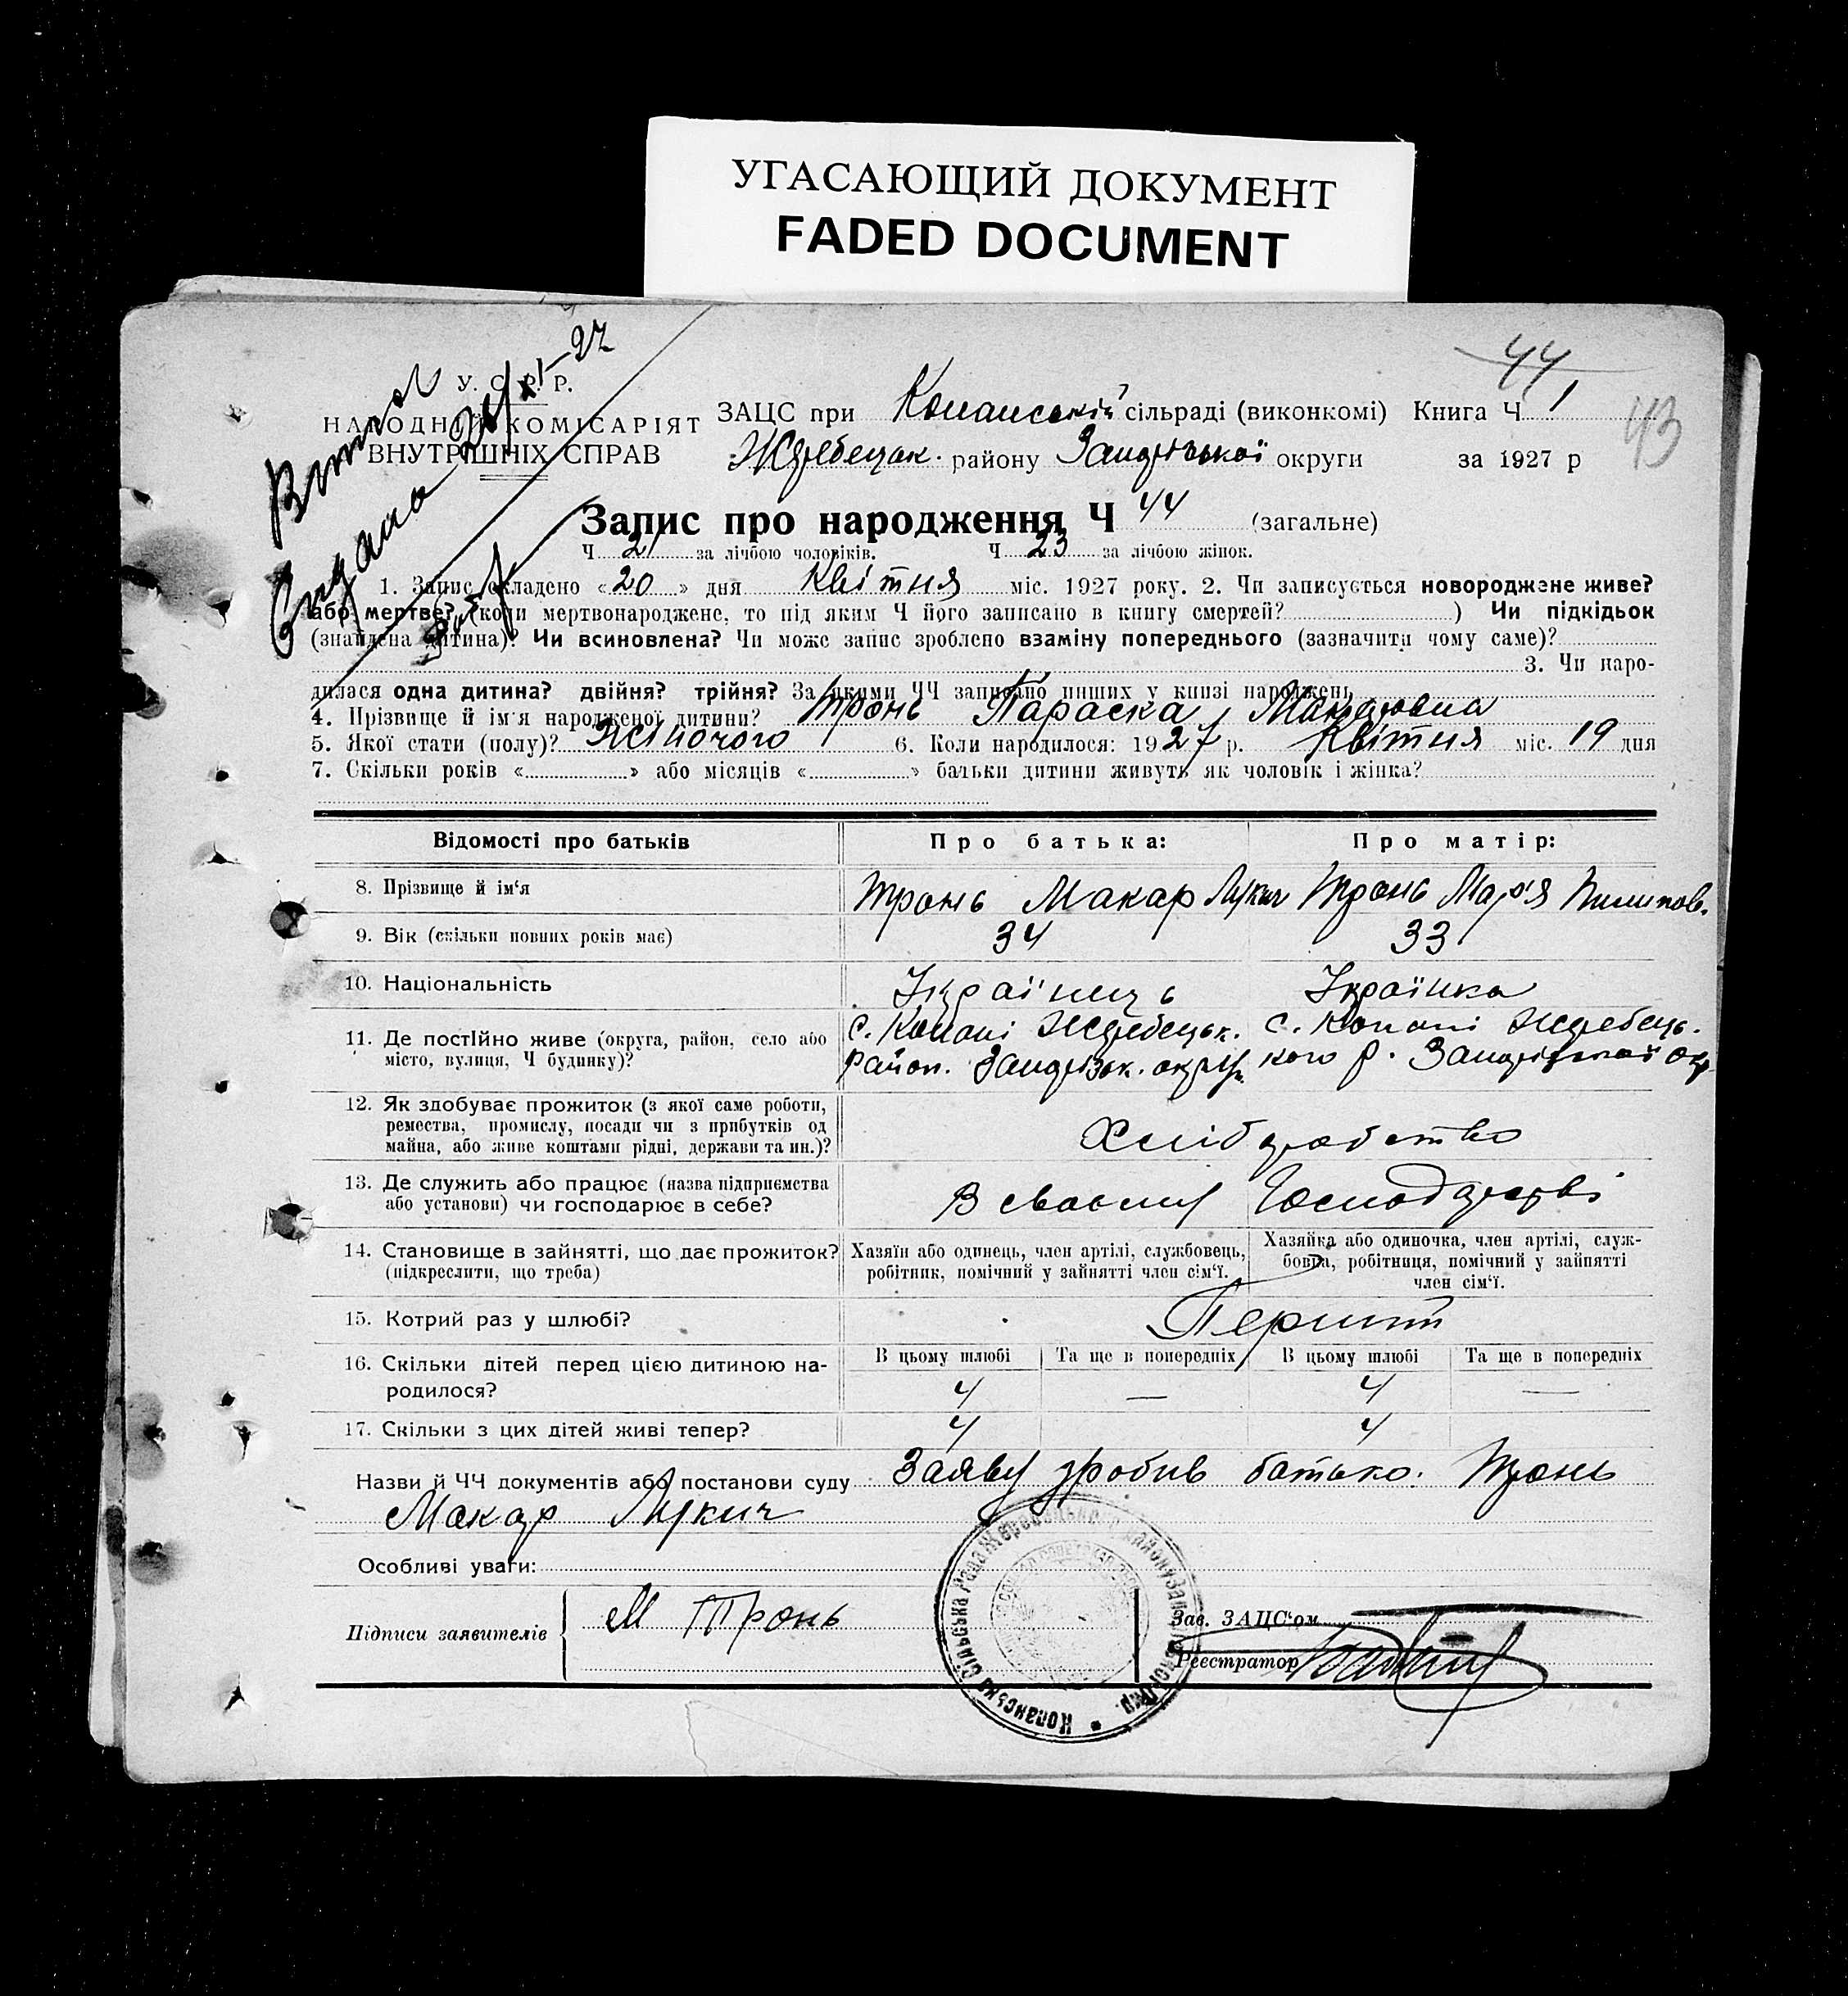 УГАСАЮЩИЙ ДОКУМЕНТ
FADED DOCUMENT
44
43
У. С. Р. Р.
НАРОДНІЙ КОМІСАРІЯТ
ВНУТРІШНІХ СПРАВ
26/XI-27
ЗАЦС при Копанській сільраді (виконкомі) Книга Ч 1
Жеребецьк. району Запорізької округи за 1927 р
Запис про народження Ч 44 (загальне)
Ч 21 за лічбою чоловіків. Ч 23 за лічбою жінок.
1. Запис складено «20» дня Квітня міс. 1927 року. 2. Чи записується новороджене живе?
або мертве? (коли мертвонароджене, то під яким Ч його записано в книгу смертей? ) Чи підкідьок
(знайдена дитина)? Чи всиновлена? Чи може запис зроблено взаміну попереднього (зазначити чому саме)?
3. Чи наро-
дилася одна дитина? двійня? трійня? За якими ЧЧ записано инших у книзі народжень
4. Прізвище й ім'я народженої дитини? Тронь Параска Макаровна
5. Якої стати (полу)? Жіночого 6. Коли народилося: 1927 р. Квітня міс. 19 дня
7. Скільки років « » або місяців « » батьки дитини живуть як чоловік і жінка?
Відомості про батьків Про батька: Про матір:
8. Прізвище й ім'я Тронь Макар Лукич Тронь Мар'я Пилипов.
9. Вік (скільки повних років має) 34 33
10. Національність Українець Українка
11. Де постійно живе (округа, район, село або місто, вулиця, Ч будинку)? с. Копані Жеребецьк. район. Запоріз. округи с. Копані Жеребець-кого р. Запорізької окр.
12. Як здобуває прожиток (з якої саме роботи,
ремества, промислу, посади чи з прибутків од
майна, або живе коштами рідні, держави та ин.)? Хліборобство
13. Де служить або працює (назва підприємства
або установи) чи господарює в себе? В своєму Господарстві
14. Становище в зайнятті, що дає прожиток?
(підкреслити, що треба)
Хазяїн або одинець, член артілі, службовець,
робітник, помічний у зайнятті член сім'ї.
Хазяйка або одиночка, член артілі, служ-
бовка, робітниця, помічний у зайнятті
член сім'ї.
15. Котрий раз у шлюбі? Перший
16. Скільки дітей перед цією дитиною на-
родилося?
В цьому шлюбі Та ще в попередніх В цьому шлюбі Та ще в попередніх
4 — 4 —
17. Скільки з цих дітей живі тепер? 4 4
Назви й ЧЧ документів або постанови суду Заяву зробив батько. Тронь
Макар Лукич
Особливі уваги:
Підписи заявителів М Тронь
Зав. ЗАЦС'ом
Реєстратор
Копанська Сільська Рада Жеребецького району Запорізької Окр.